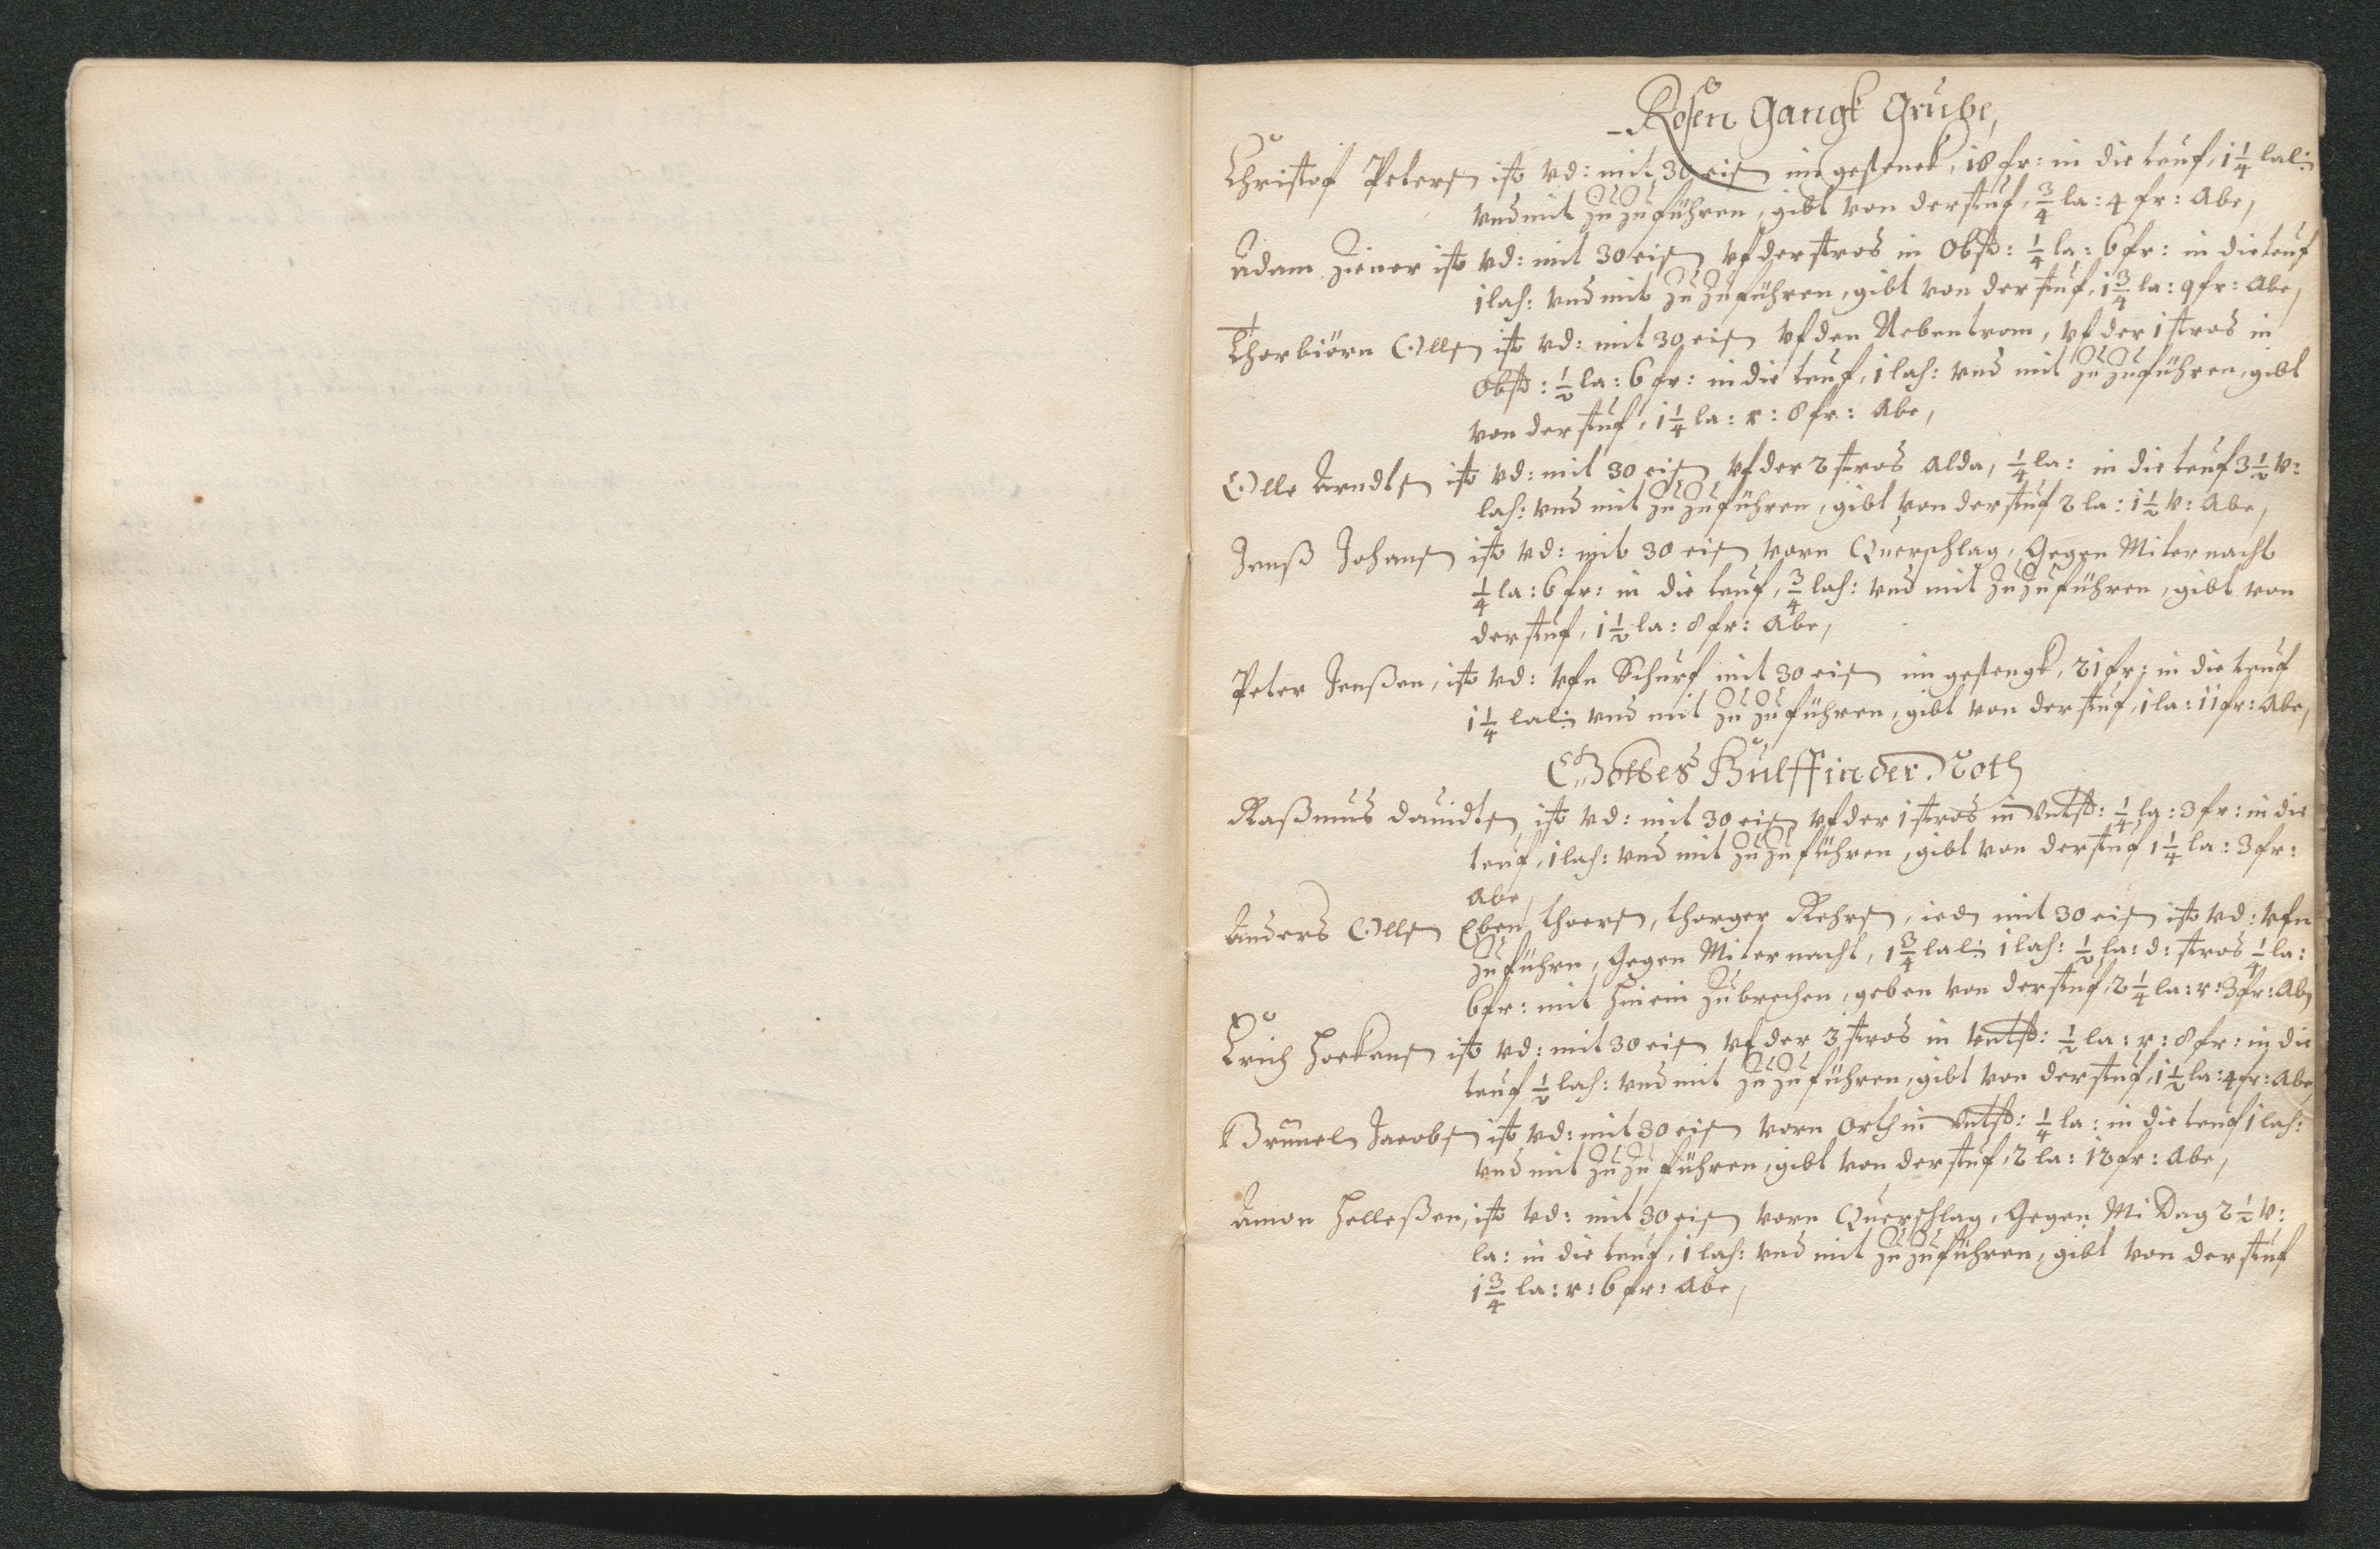 Rosen Gangk Grube,
Christof Peters ist vd: mit 30 eis im gestenck, 18 fr: in die teuf, 1 1/4 lal:
vnd mit zu zuführen, gibt von der stuf, 3/4 la: 4 fr: Abe,
Adam Ziener ist vd: mit 30 eis vf der stros in Obst: 1/4 la: 6 fr: in die teuf
1 lach: vnd mit zu zuführen, gibt von der stuf, 1 3/4 la: 9 fr: Abe,
Thorbiörn Olls ist vd: mit 30 eis vf den Nebentrom, vf der 1 stros in
Obst: 1/2 la: 6 fr: in die teuf, 1 lach: vnd mit zu zuführen, gibt
von der stuf, 1 1/4 la: r: 8 fr: Abe,
Olle Arndts ist vd: mit 30 eis vf der 2 stros alda, 1/4 la: in die teuf 3 1/2 v:
lach: vnd mit zu zuführen, gibt von der stuf 2 la: 1 1/2 v: Abe,
Jenß Johans ist vd: mit 30 eis vorn Querschlag, Gegen Miternacht
1/4 la: 6 fr: in die teuf, 3/4 lach: vnd mit zu zuführen, gibt von
der stuf, 1 1/2 la: 8 fr: Abe,
Peter Jenßen, ist vd: vfn Schurf mit 30 eis im gestengk, 21 fr: in die teuf
1 1/4 lal: vnd mit zu zuführen, gibt von der stuf, 1 la: 11 fr: Abe,
Gottes Hülff in der Noth
Raßmus Dauidts ist vd: mit 30 eis vf der 1 stros in Vntst: 1/4 la: 3 fr: in die
teuf, 1 lach: vnd mit zu zuführen, gibt von der stuf 1 1/4 la: 3 fr:
Abe,
Anders Olls Eben Thoers, Thorger Rehrs, ied mit 30 eis ist vd: vfn
zuführn, Gegen Miternacht, 1 3/4 lal: 1 lach: 1/2 la: d: stros 1/4 la:
6 fr: mit hinein zubrechen, geben von der stuf, 2 1/4 la: r: 3 fr: Ab
Erich Hoekens ist vd: mit 30 eis vf der 3 stros in vntst: 1/2 la: r: 8 fr: in die
teuf 1/2 lach: vnd mit zu zuführen, gibt von der stuf, 1 1/2 la: 4 fr: Abe,
Brunel Jacobs ist vd: mit 30 eis vorn Orth in Vntst: 1/4 la: in die teuf 1 lach:
vnd mit zu zuführen, gibt von der stuf, 2 la: 12 fr: Abe,
Amon Helleßen, ist vd: mit 30 eis vorn Querschlag, Gegen Mi Dag 2 1/2 v:
la: in die teuf, 1 lach: vnd mit zu zuführen, gibt von der stuf
1 3/4 la: r: 6 fr: Abe,